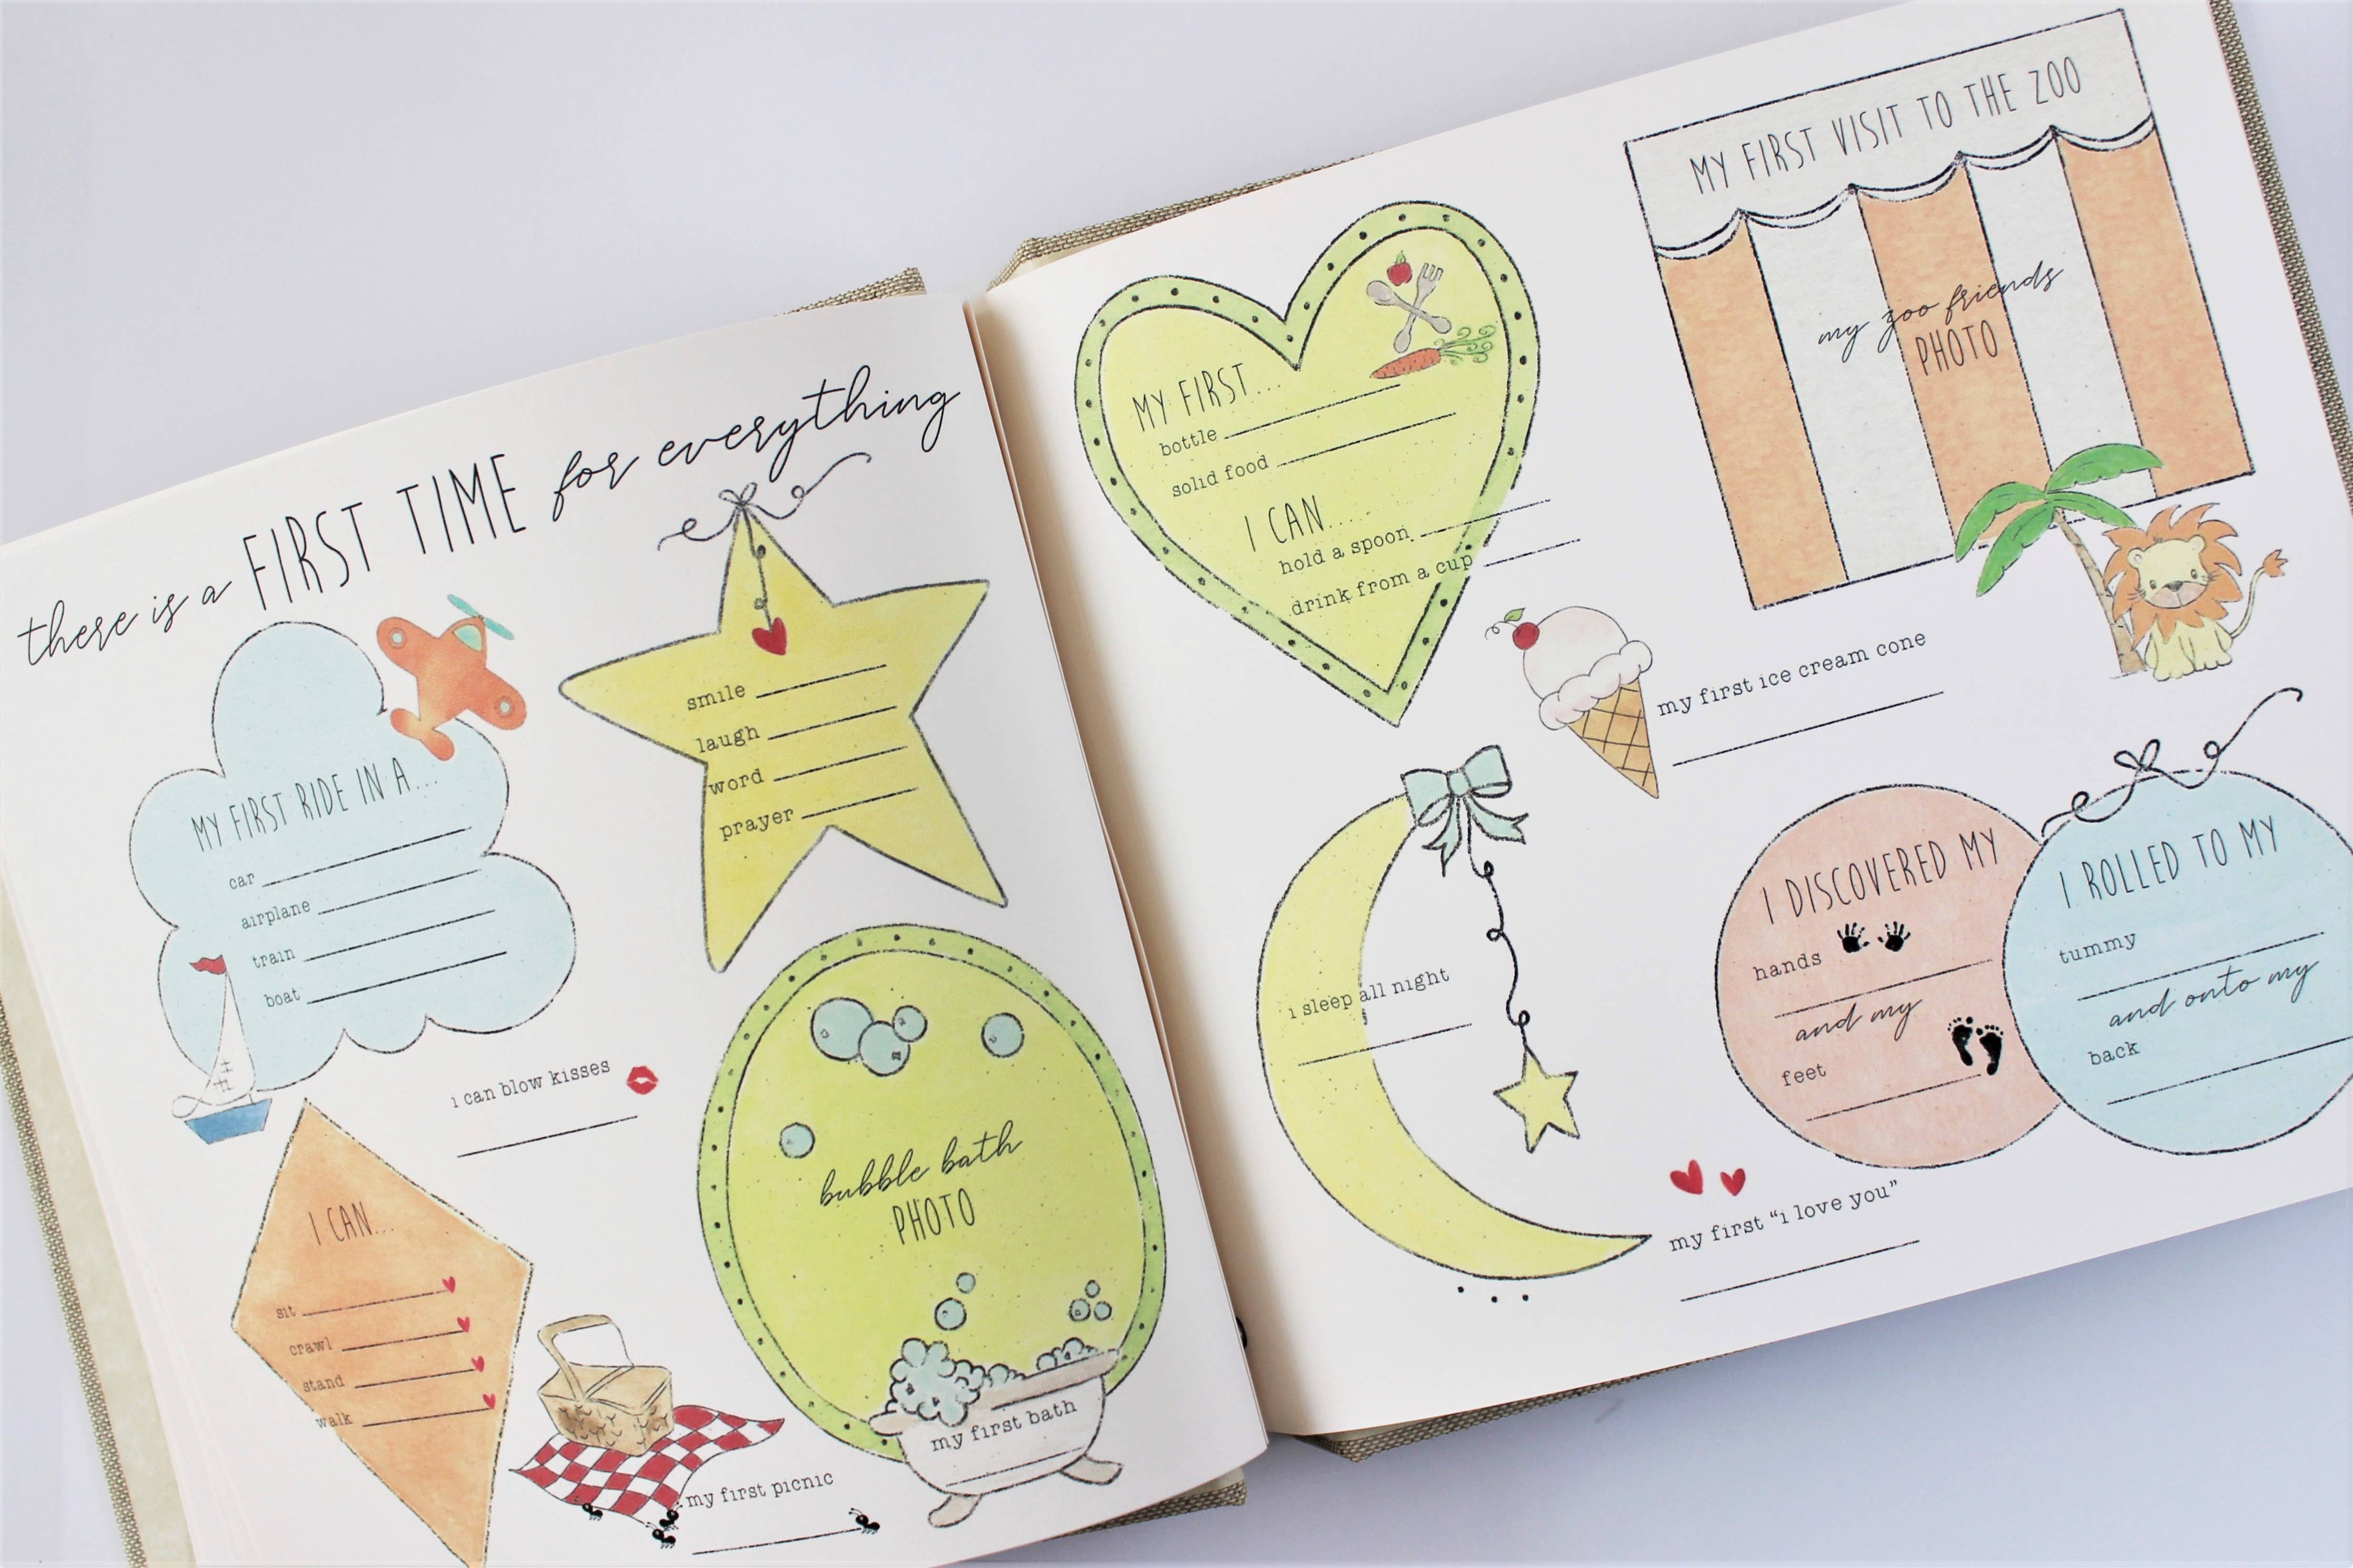 there is a FIRST TIME for everything
MY FIRST RIDE IN A...
car
airplane
train
boat
smile
laugh
word
prayer
i can blow kisses
I CAN...
sit
crawl
stand
walk
bubble bath
PHOTO
my first bath
my first picnic
MY FIRST...
bottle
solid food
I CAN.....
hold a spoon
drink from a cup
MY FIRST VISIT TO THE ZOO
my zoo friends
PHOTO
my first ice cream cone
i sleep all night
I DISCOVERED MY
hands
and my
feet
I ROLLED TO MY
tummy
and onto my
back
my first “i love you”